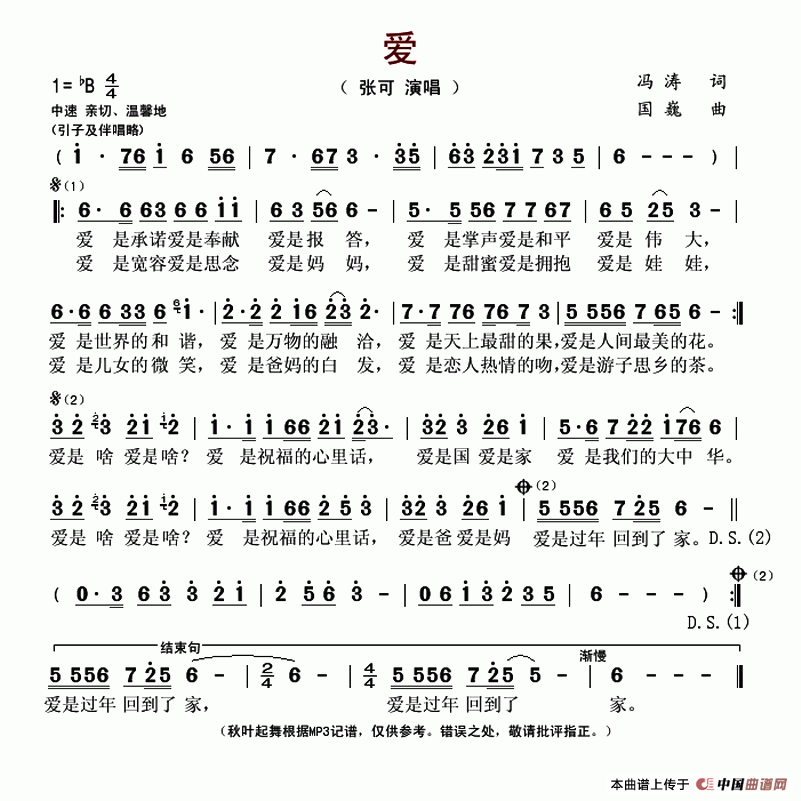 爱
1=♭B 4/4
（ 张可 演唱 ）
冯 涛 词
国 巍 曲
中速 亲切、温馨地
(引子及伴唱略)
( i· 76i 6 56 | 7· 67 3· 35 | 63 23i 7 3 5 | 6 - - ) |
𝄋(1)
‖: 6· 6 63 6 6 i i | 6 3 56 6 - | 5· 5 56 7 7 67 | 6 5 25 3 - |
爱 是承诺爱是奉献 爱是报 答， 爱 是掌声爱是和平 爱是 伟 大，
爱 是宽容爱是思念 爱是妈 妈， 爱 是甜蜜爱是拥抱 爱是 娃 娃，
6·6 6 33 6 i· | 2·2 2 i6 i2 2· | 7·7 76 76 7 3 | 5 556 7 65 6 - :‖
爱 是世界的和 谐， 爱 是万物的融 洽， 爱 是天上最甜的果,爱是人间最美的花。
爱 是儿女的微 笑， 爱 是爸妈的白 发， 爱 是恋人热情的吻,爱是游子思乡的茶。
𝄋(2)
3 2 3 2i 2 | i· i i 66 2i 23· | 32i 3 26 i | 5·6 7 22 i76 6 |
爱是 啥 爱是啥? 爱 是祝福的心里话， 爱是国 爱是家 爱 是我们的大中 华。
𝄌(2)
3 2 3 2i 2 | i· i i 66 25 3 | 32i 3 26 i | 5 556 7 25 6 - ‖
爱是 啥 爱是啥? 爱 是祝福的心里话， 爱是爸 爱是妈 爱是过年 回到了 家。 D.S.(2)
𝄌(2)
( 0·3 6 3 3 2i | 2 56 3 - | 0 6 i 3 2 3 5 | 6 - - ) :‖
D.S.(1)
结束句
渐慢
5 556 7 25 6 - | 2/4 6 - | 4/4 5 556 7 25 5 - | 6 - - - ‖
爱是过年 回到了 家， 爱是过年 回到了 家。
(秋叶起舞根据MP3记谱，仅供参考。错误之处，敬请批评指正。)
本曲谱上传于 中国曲谱网